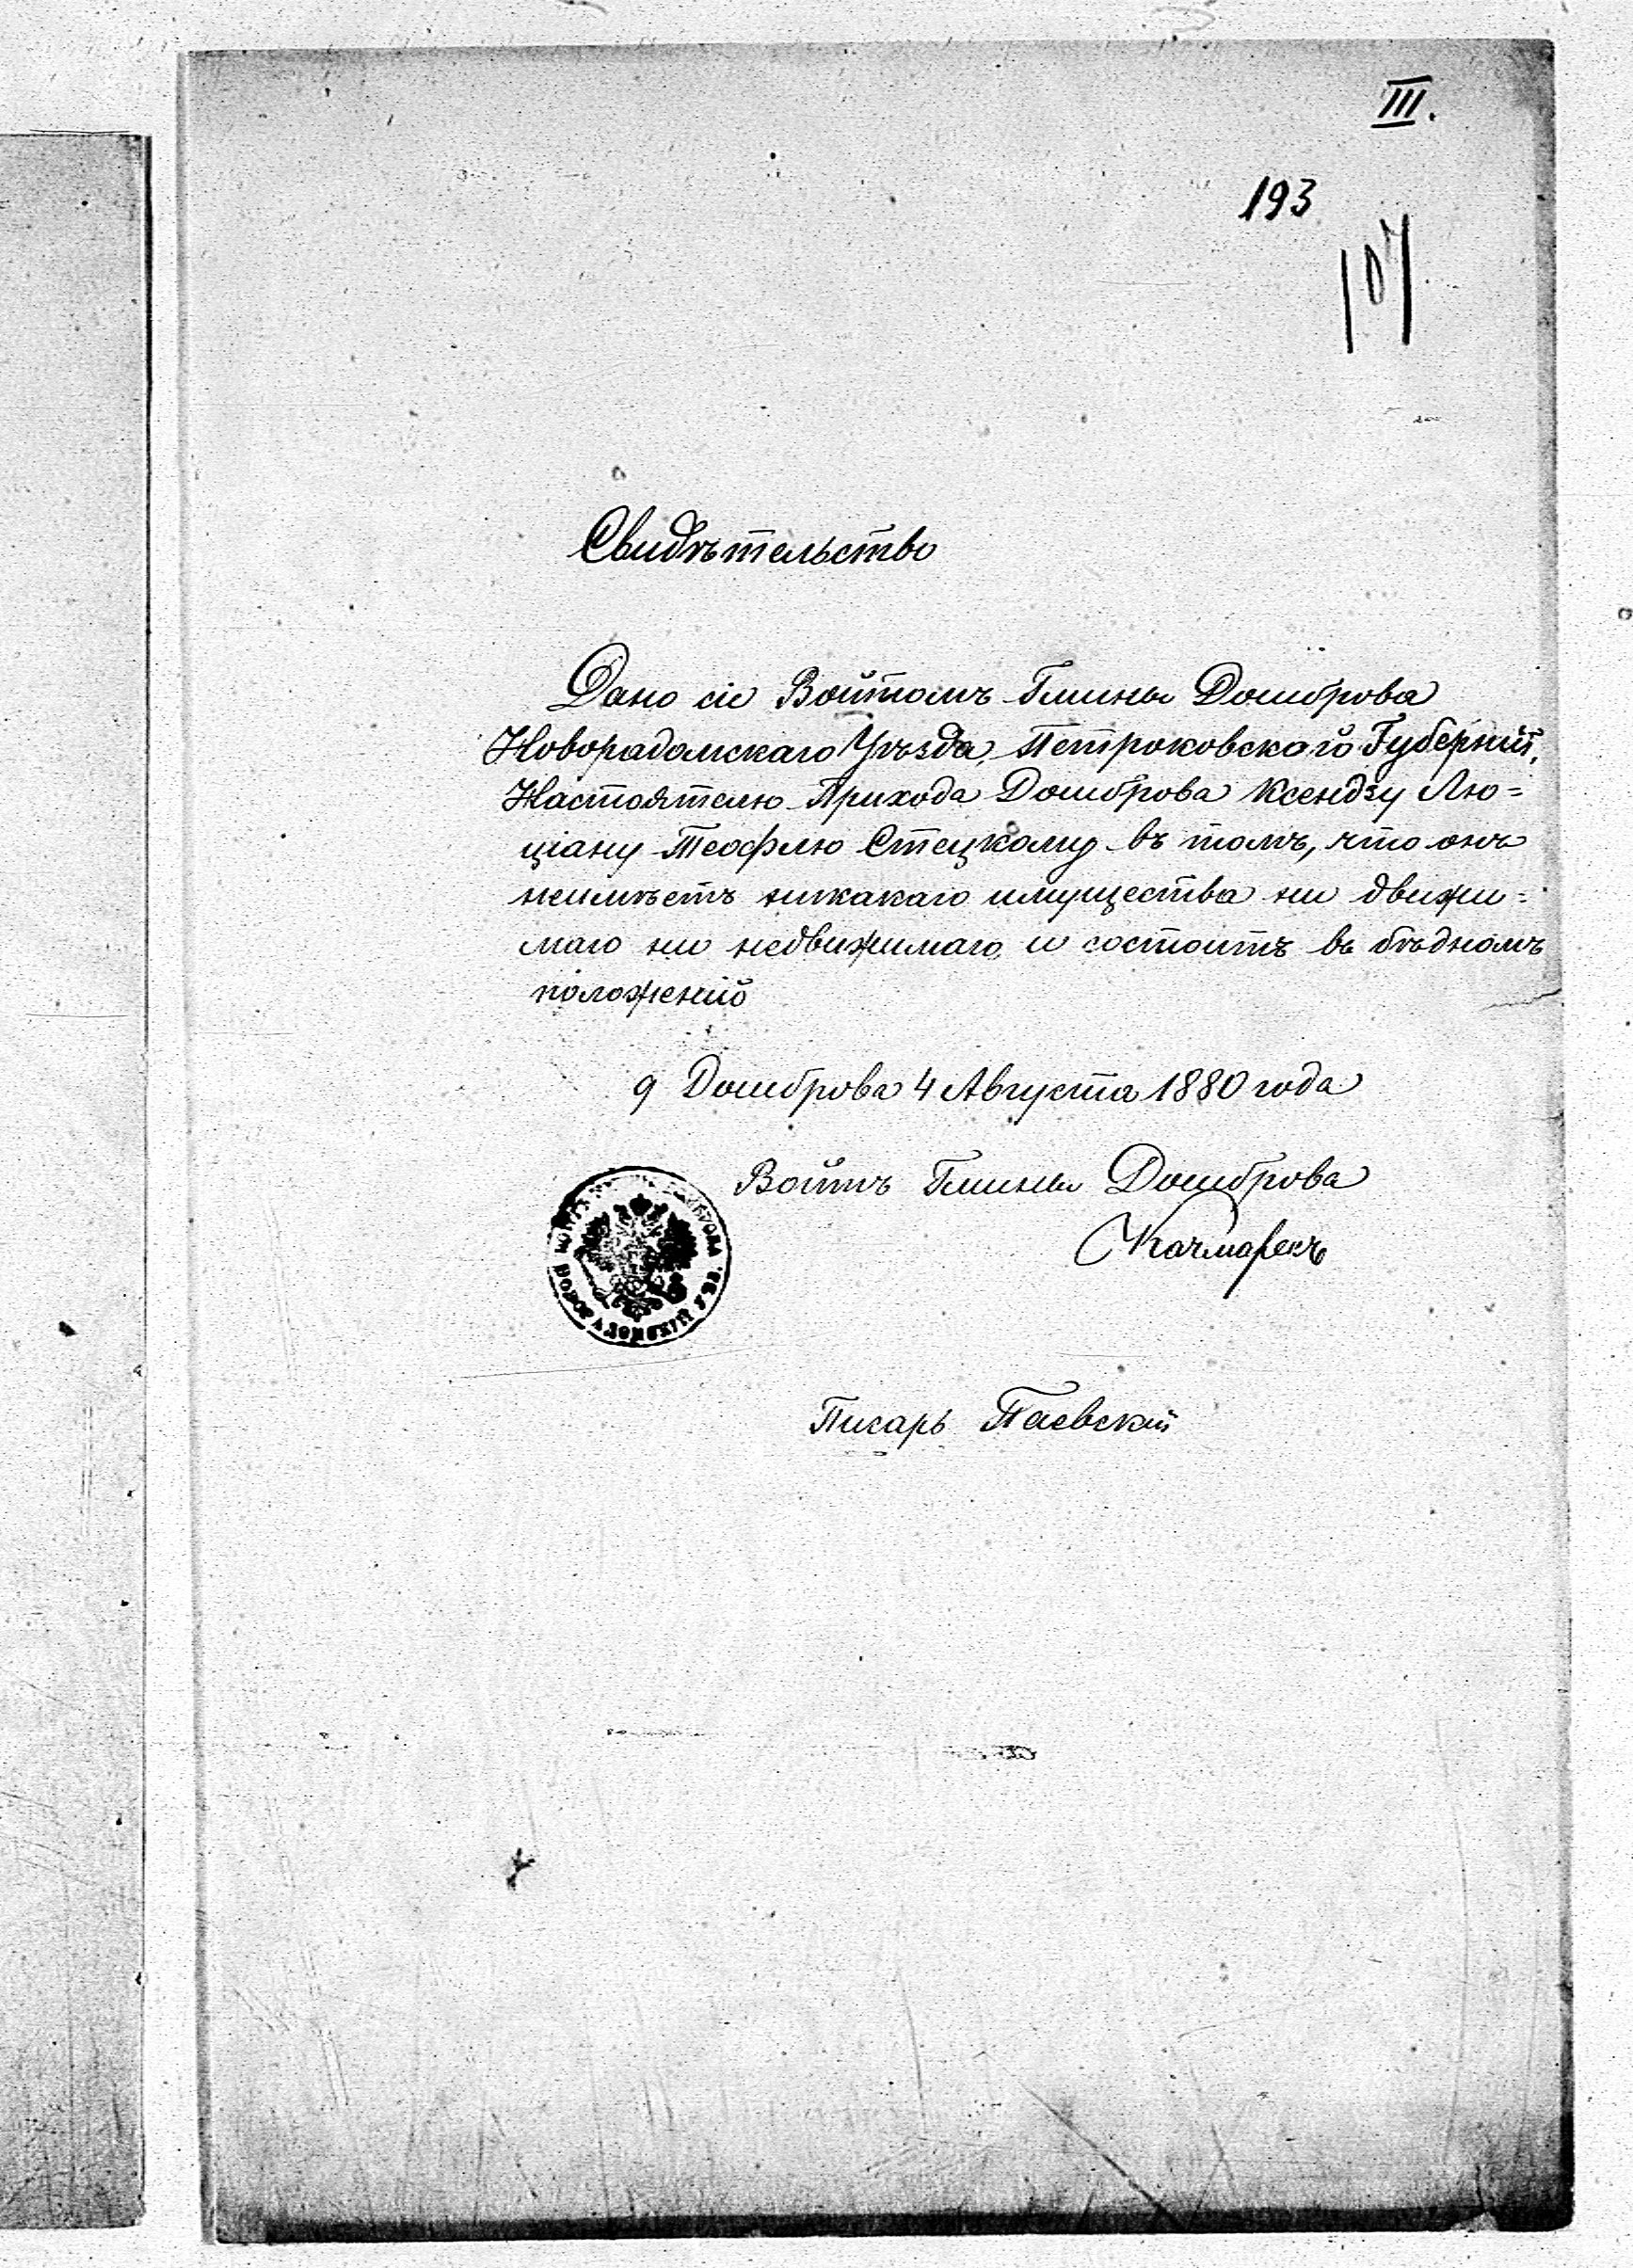 III.
193
107
Свидѣтельство
Дано сіе Войтомъ Гмины Домброва
Новорадомскаго Уѣзда, Петроковской Губерніи,
Настоятелю Прихода Домброва Ксендзу Лю=
ціану Теофлю Стецкому въ томъ, что онъ
неимѣетъ никакаго имущества ни движи=
маго ни недвижимаго, и состоитъ въ бѣдномъ
положеніи
Домброва 4 Августа 1880 года
Войтъ Гмины Домброва
Качмарекъ
Писарь Паевскій